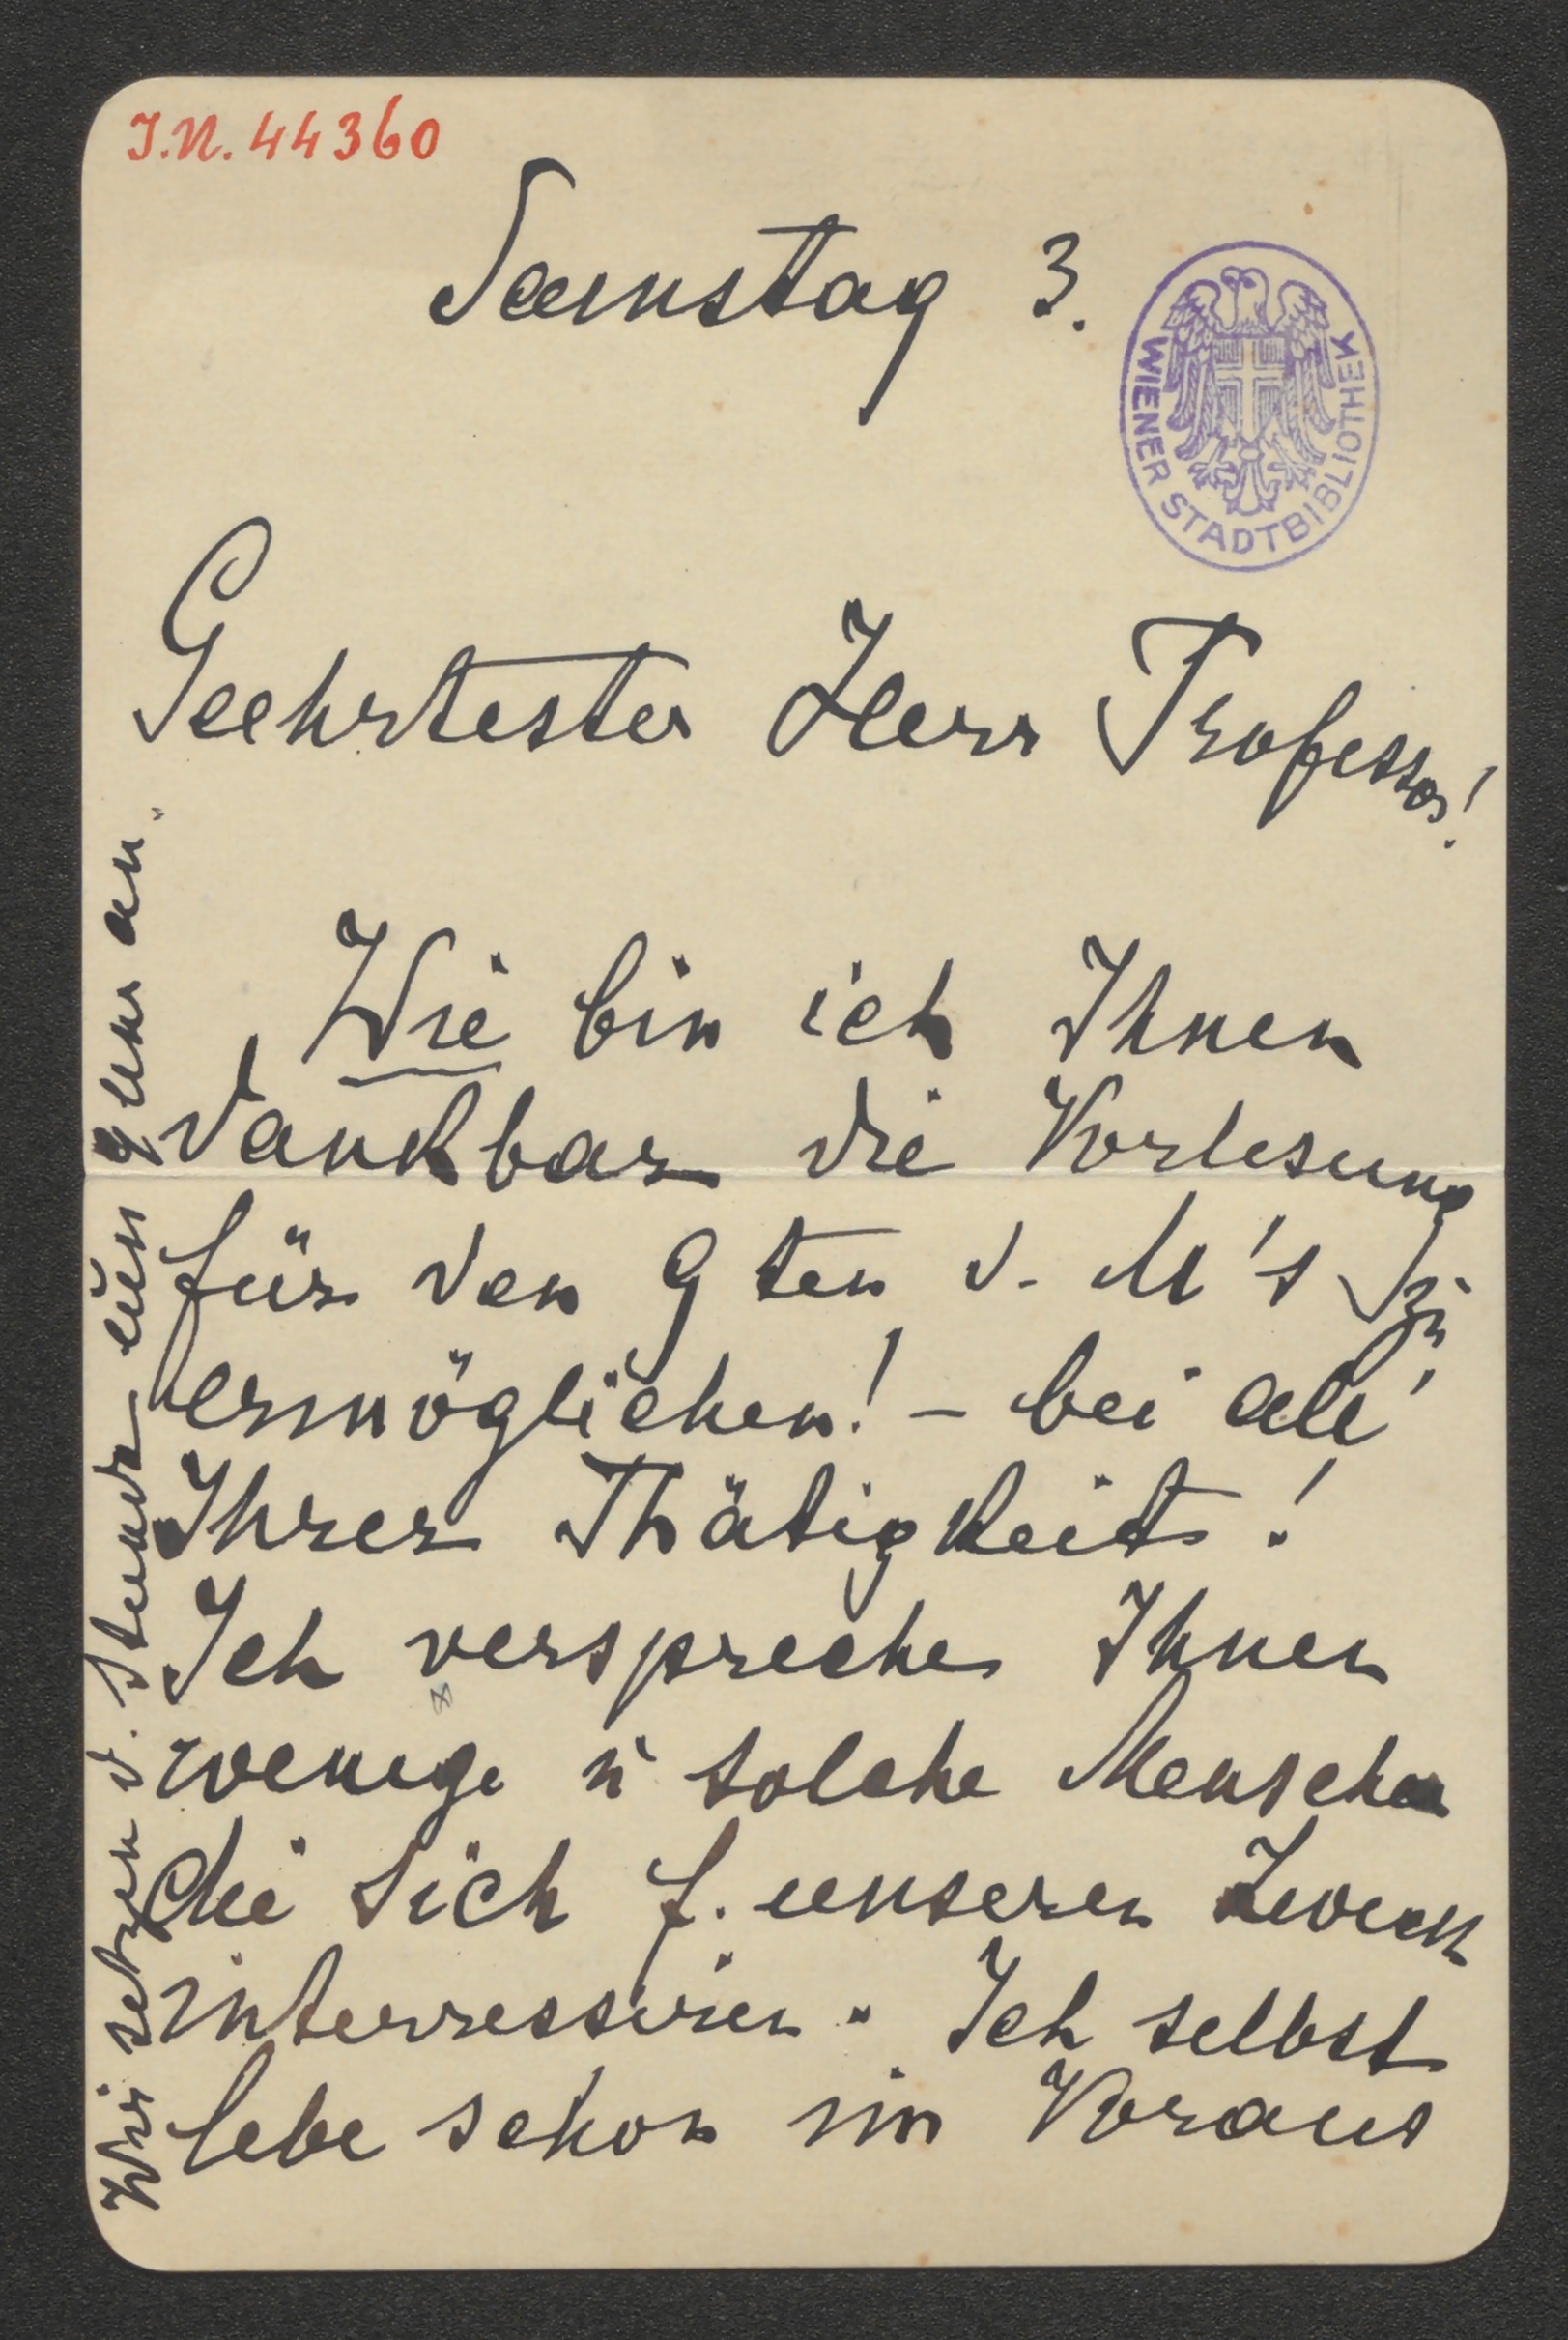 I.N. 44360
Samstag 3.
WIENER STADTBIBLIOTHEK
Geehrtester Herr Professor!
Wie bin ich Ihnen
dankbar die Vorlesung
für den 9ten d. M's zu
ermöglichen! – bei all'
Ihrer Thätigkeit!
Ich verspreche Ihnen
wenige u solche Menschen
die Sich f. unseren Zweck
interressiren. Ich selbst
lebe schon im Voraus
Wir setzen d. Stunde um